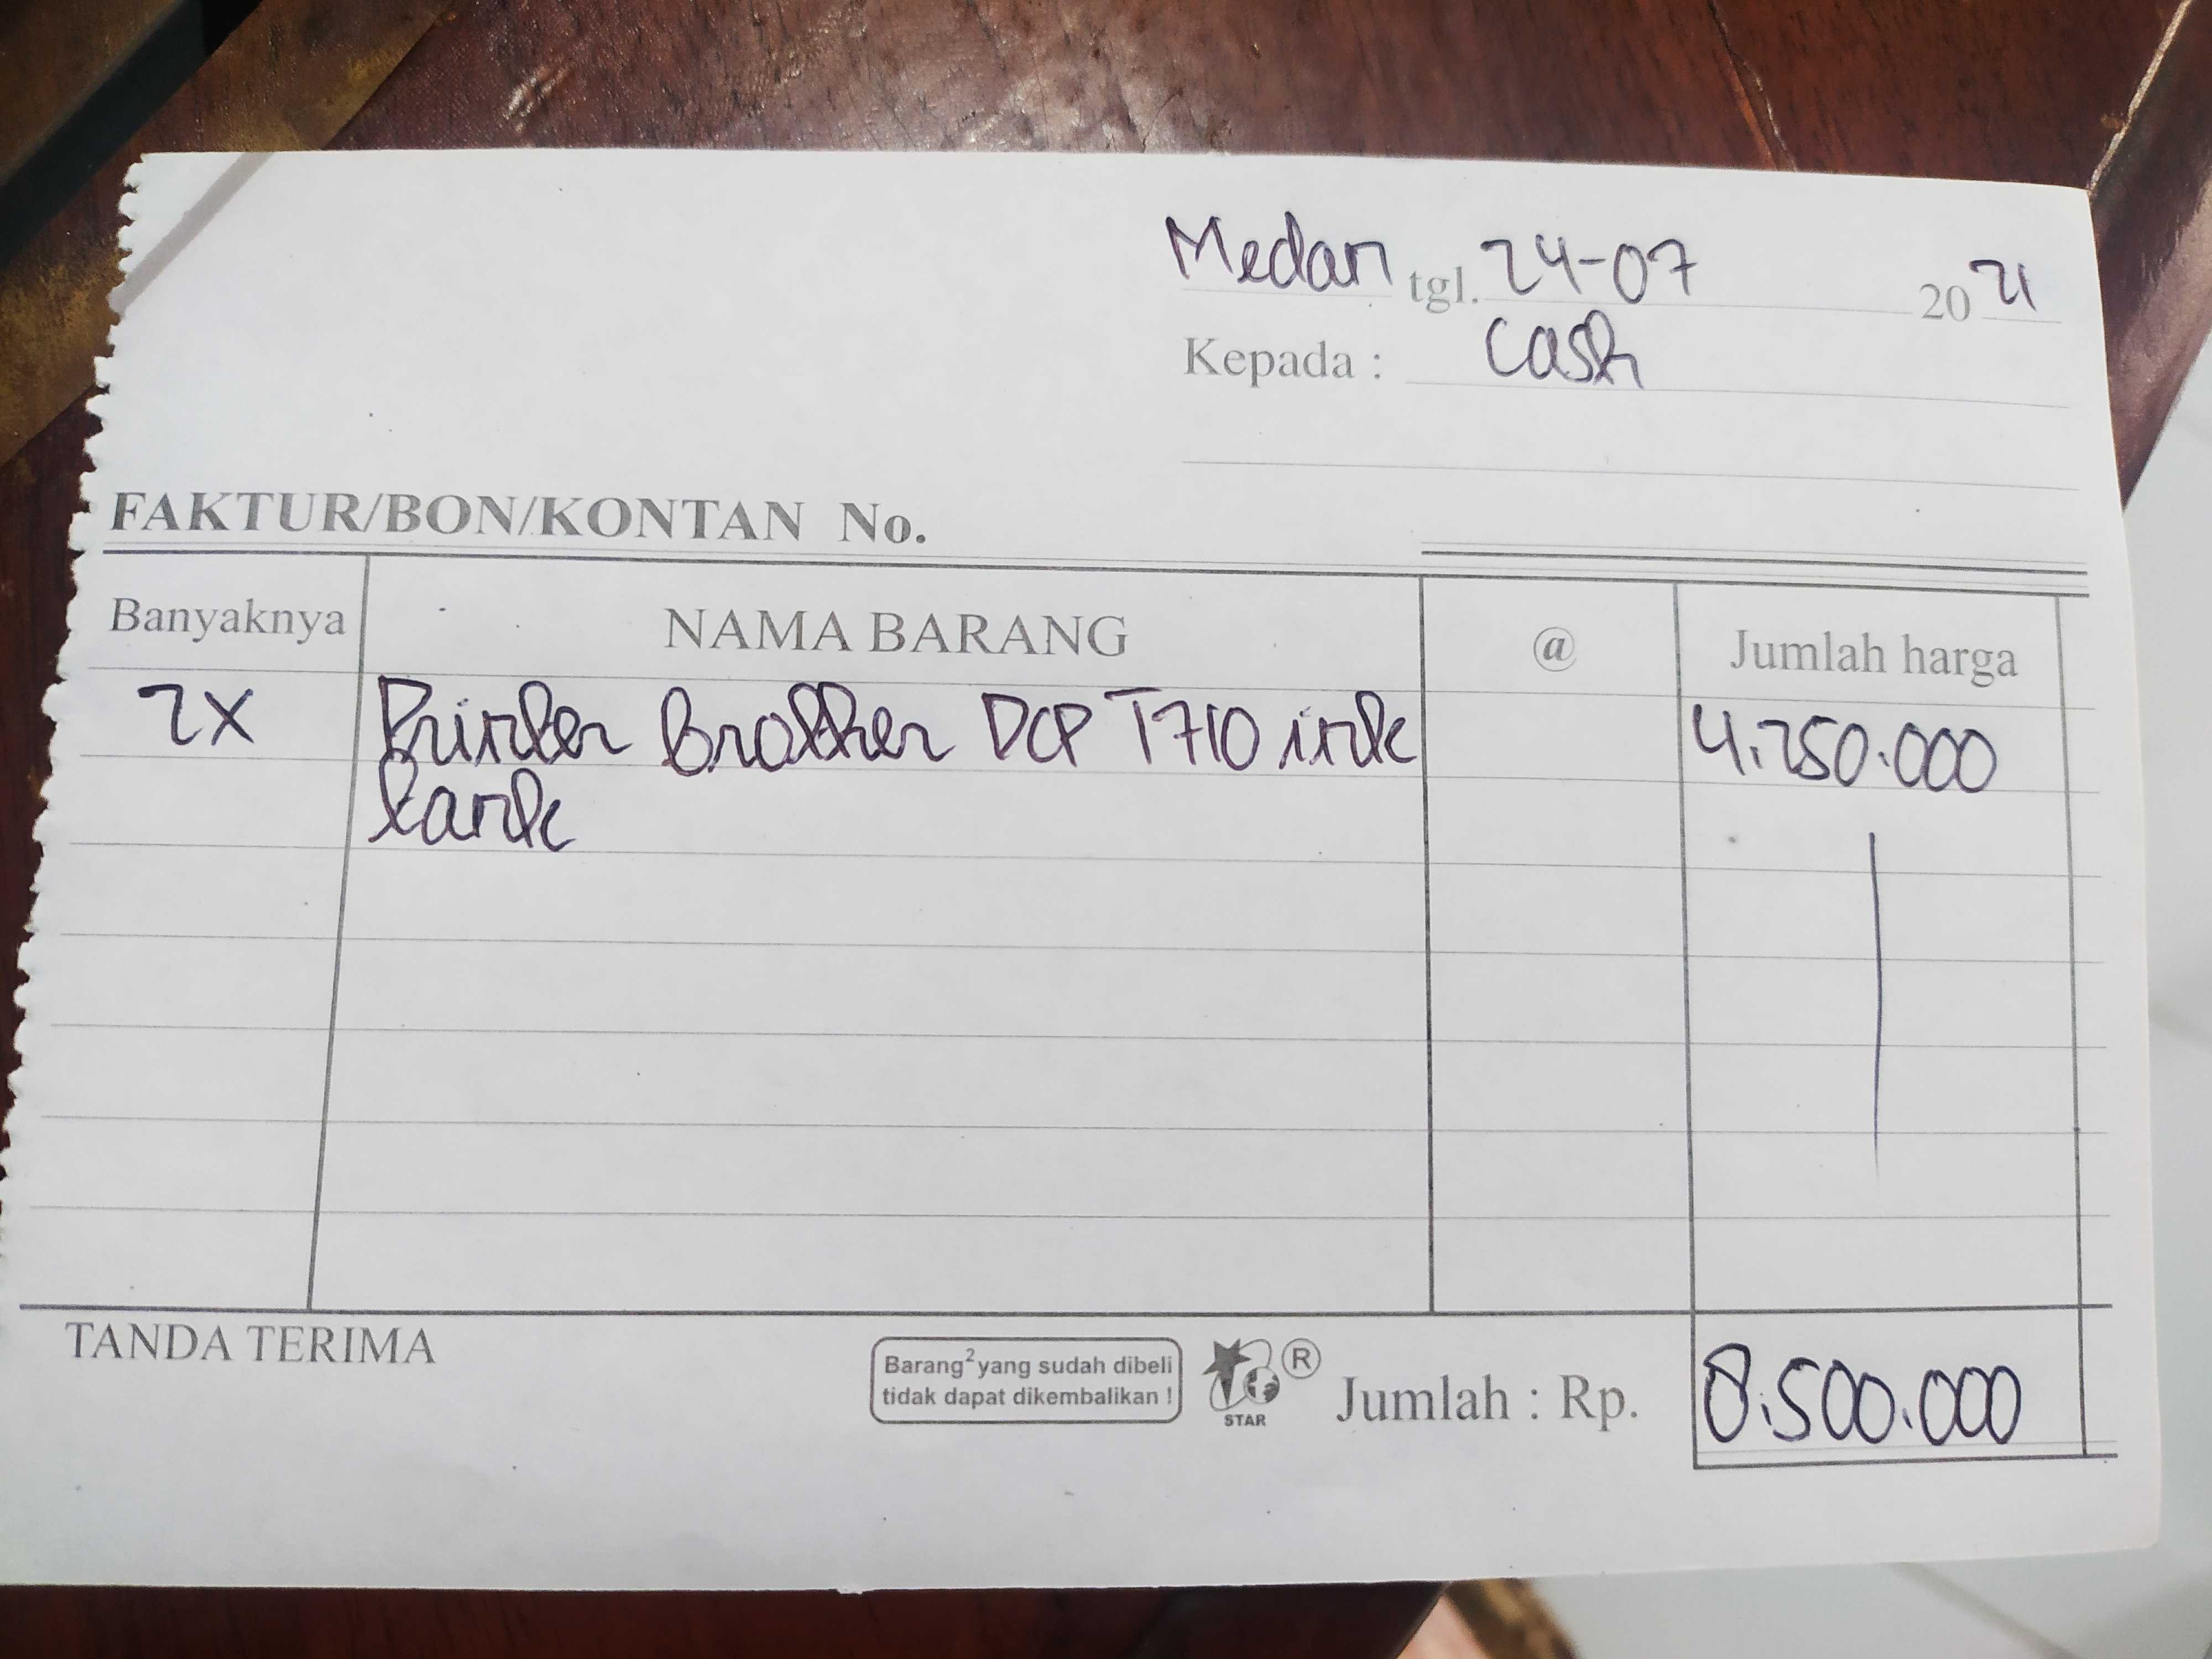 Medan tgl. 24-07 2021
Kepada : Cash
FAKTUR/BON/KONTAN No.
Banyaknya NAMA BARANG @ Jumlah harga
2X Printer Brother DCP T710 ink 4.250.000
tank
TANDA TERIMA
Barang² yang sudah dibeli
tidak dapat dikembalikan !
STAR
®
Jumlah : Rp. 8.500.000